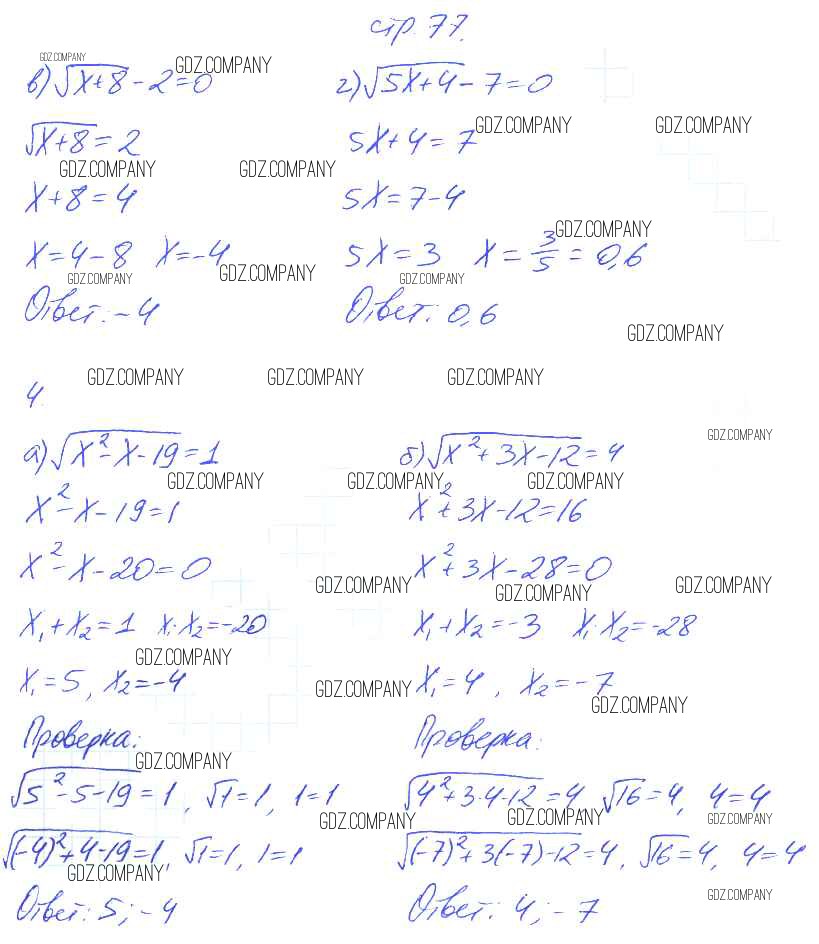 стр. 77.
GDZ.COMPANY GDZ.COMPANY
в) √(x+8) - 2 = 0 г) √(5x+4) - 7 = 0
GDZ.COMPANY GDZ.COMPANY
√(x+8) = 2 5x+4 = 7
GDZ.COMPANY GDZ.COMPANY
x+8 = 4 5x = 7-4
GDZ.COMPANY
x = 4-8 x = -4 5x = 3 x = 3/5 = 0,6
GDZ.COMPANY GDZ.COMPANY GDZ.COMPANY
Ответ: -4 Ответ: 0,6
GDZ.COMPANY
GDZ.COMPANY GDZ.COMPANY GDZ.COMPANY
4.
GDZ.COMPANY
а) √(x²-x-19) = 1 б) √(x²+3x-12) = 4
GDZ.COMPANY GDZ.COMPANY GDZ.COMPANY
x²-x-19=1 x²+3x-12=16
x²-x-20=0 x²+3x-28=0
GDZ.COMPANY GDZ.COMPANY GDZ.COMPANY
x₁+x₂=1 x₁·x₂=-20 x₁+x₂=-3 x₁·x₂=-28
GDZ.COMPANY
x₁=5, x₂=-4 x₁=4, x₂=-7
GDZ.COMPANY GDZ.COMPANY
Проверка: Проверка:
GDZ.COMPANY
√(5²-5-19)=1, √1=1, 1=1 √(4²+3·4-12)=4 √16=4, 4=4
GDZ.COMPANY GDZ.COMPANY GDZ.COMPANY
√((-4)²+4-19)=1, √1=1, 1=1 √((-7)²+3(-7)-12=4, √16=4, 4=4
GDZ.COMPANY GDZ.COMPANY
Ответ: 5; -4 Ответ: 4; -7